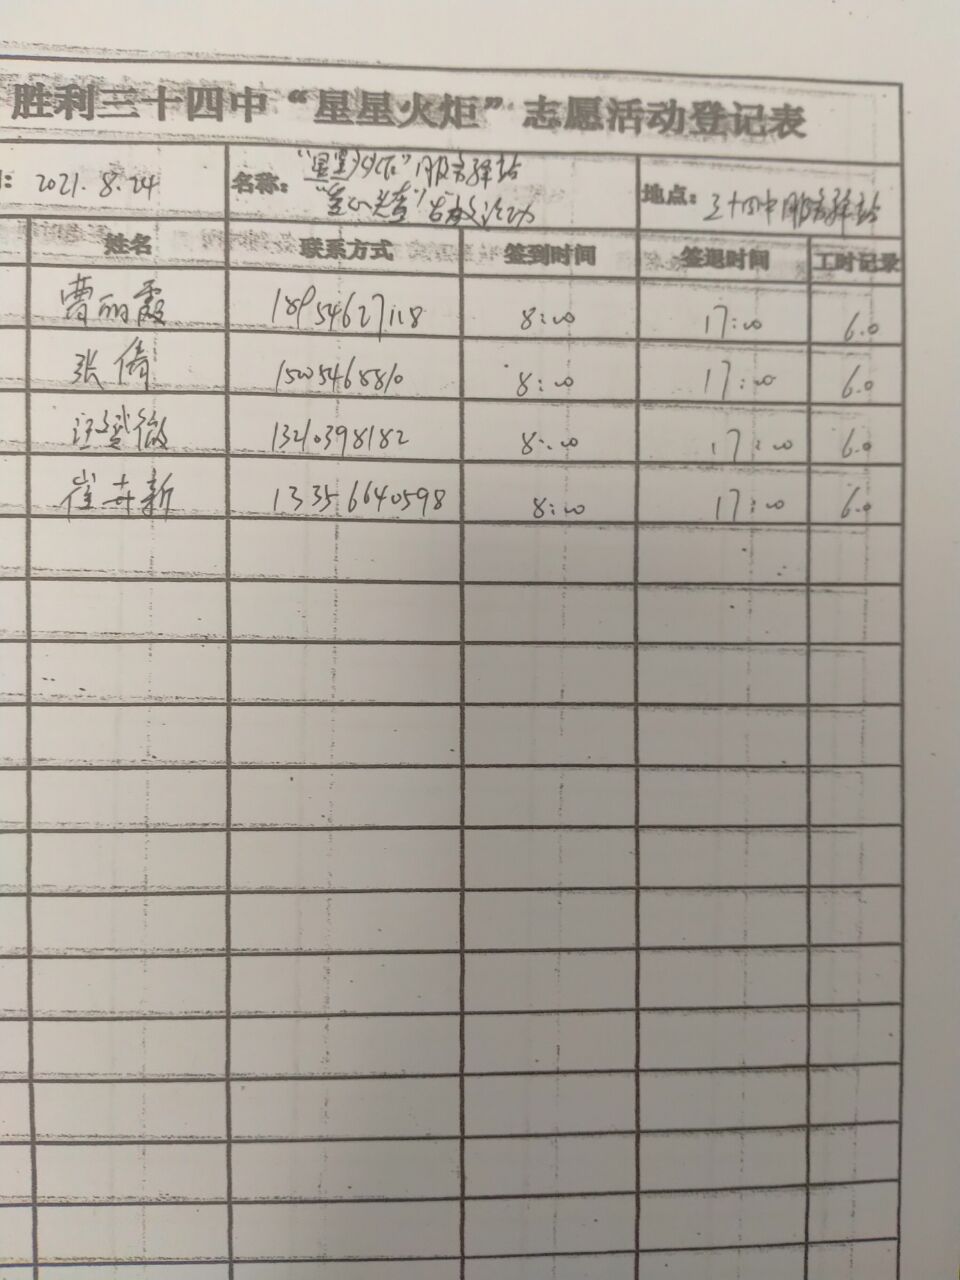 胜利三十四中“星星火炬”志愿活动登记表
: 2021.8.24 名称: “星星火炬”服务驿站 地点: 三十四中服务驿站
“童心关爱”
姓名 联系方式 签到时间 签退时间 工时记录
曹丽霞 18954627118 8:00 17:00 6.0
张倩 15005468810 8:00 17:00 6.0
汪赟薇 13210398182 8:00 17:00 6.0
崔卉新 13356640598 8:00 17:00 6.0